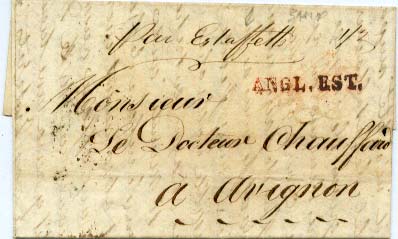 Par Estaffette 1/2
ANGL. EST.
Monsieur
Le Docteur Chauffard
a Avignon